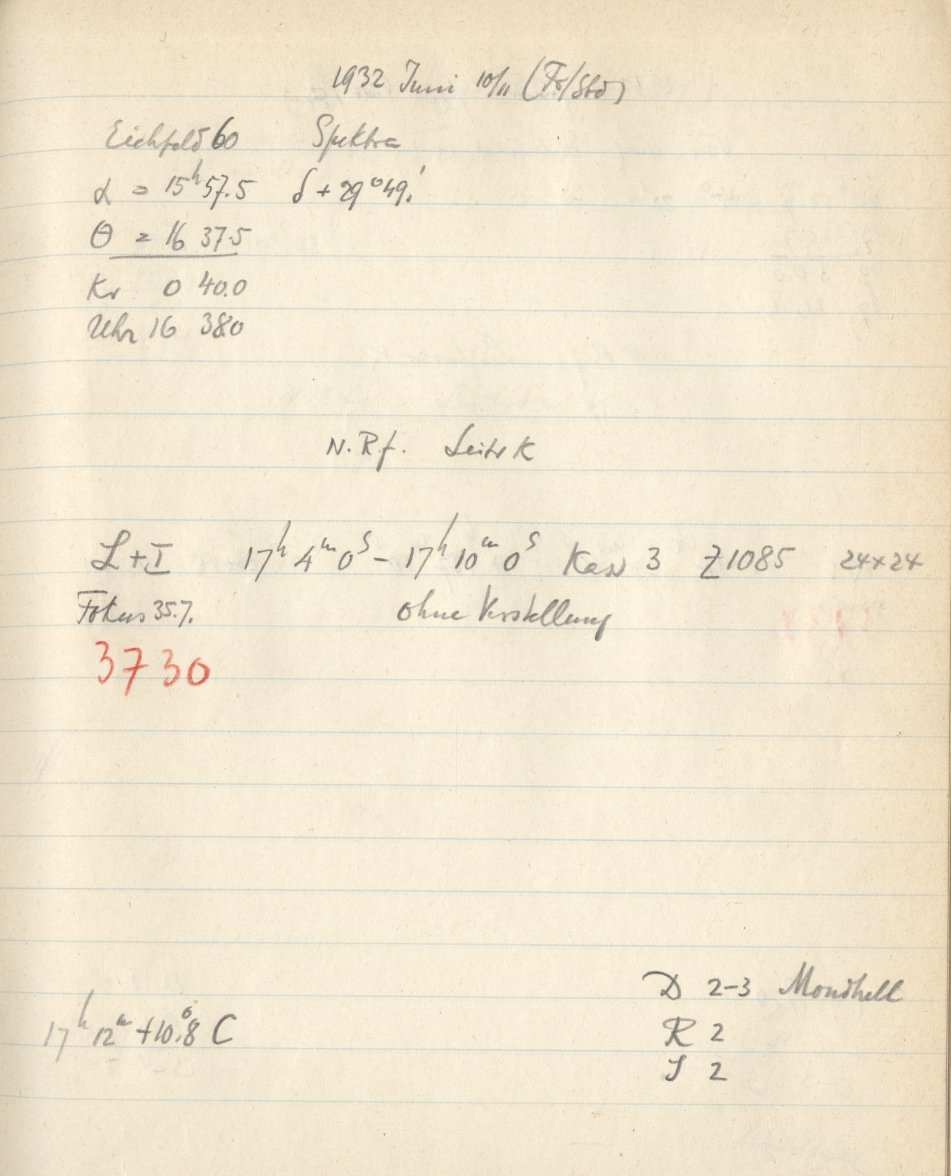 1932 Juni 10/11 (Fr/Sbd)
Eichfeld 60 Spektra
α = 15h 57.5 δ + 29° 49.'
Θ = 16 37.5
Kr 0 40.0
Uhr 16 38.0
N. R f. Leitr K
L + I 17h 4m 0s – 17h 10m 0s Kass 3 Z1085 24×24
Fokus 35.7. ohne Verstellung
3730
D 2–3 Mondhell
17h 12m +10.°8 C R 2
S 2